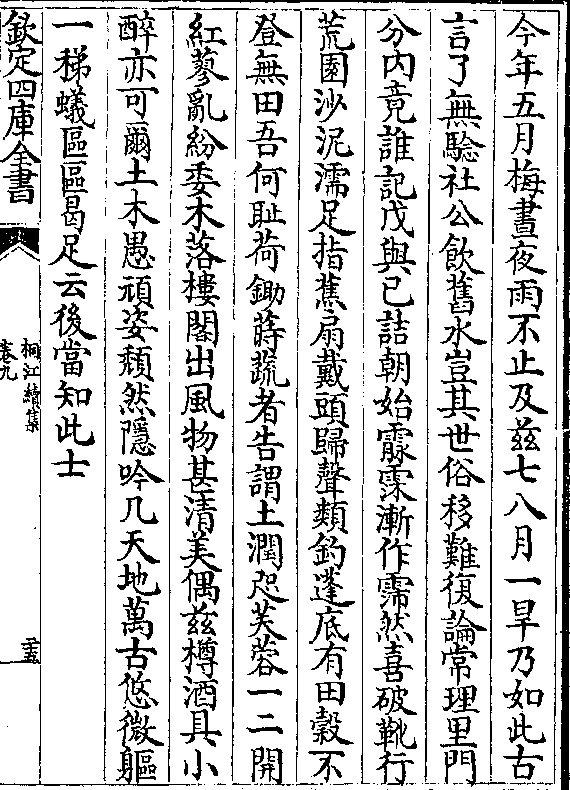 今年五月梅晝夜雨不止及兹七八月一旱乃如此古
言了無驗社公飲舊水豈其世俗移難復論常理里門
分内竟誰記戊與已詰朝始霢霂漸作霈然喜破靴行
荒園沙泥濡足指蕉扇戴頭歸聲類釣蓬底有田榖不
登無田吾何耻荷鋤蒔蔬者告謂土潤咫芙蓉一二開
紅蓼亂紛委木落樓閣出風物甚清美偶兹樽酒具小
醉亦可爾土木愚頑姿頽然隱吟几天地萬古悠微軀
一稊蟻區區曷足云後當知此士
欽定四庫全書
桐江續集
卷九
二五